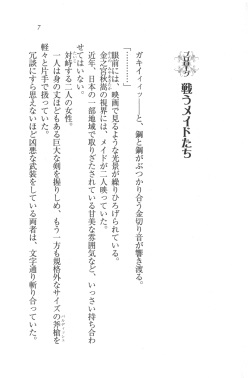 プロローグ 戦うメイドたち
ガキイィィッ━━と、鋼と鋼がぶつかり合う金切り音が響き渡る。
「…………」
眼前には、映画で見るような光景が繰りひろげられている。
金之宮秋嵩の視界には、メイドが二人映っていた。
近年、日本の一部地域で取りざたされている甘美な雰囲気など、いっさい持ち合わ
せてはいない。
対峙する二人の女性。
一人は身の丈ほどもある巨大な剣を握りしめ、もう一方も規格外なサイズの斧槍を
軽々と片手で扱っていた。
冗談にすら思えないほど凶悪な武装をしている両者は、文字通り斬り合っていた。
7